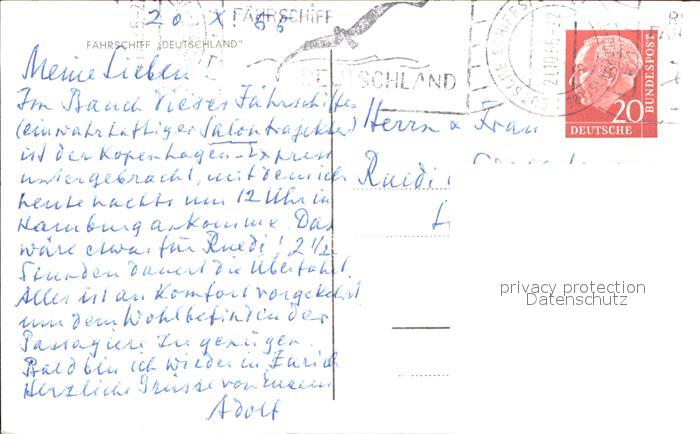 20 X 55
FÄHRSCHIFF
FÄHRSCHIFF „DEUTSCHLAND"
DEUTSCHLAND
DEUTSCHE SCHIFFSPOST
21.10.55-22
20
DEUTSCHE
BUNDESPOST
Meine Lieben!
Im Bauch dieses Fährschiffes
(ein wahrhaftiger Salontrajekter)
ist der Kopenhagen-Express
untergebracht, mit dem ich
heute nachts um 12 Uhr in
Hamburg ankomme. Das
wäre etwas für Ruedi! 2½
Stunden dauert die Überfahrt.
Alles ist an Komfort vorgekehrt
um dem Wohlbefinden der
Passagiere zu genügen.
Bald bin ich wieder in Zürich
Herzliche Grüsse von Eurem
Adolf
Herrn & Frau
Ruedi
privacy protection
Datenschutz